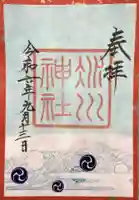 奉拝
氷川
神社
令和二年九月十二日